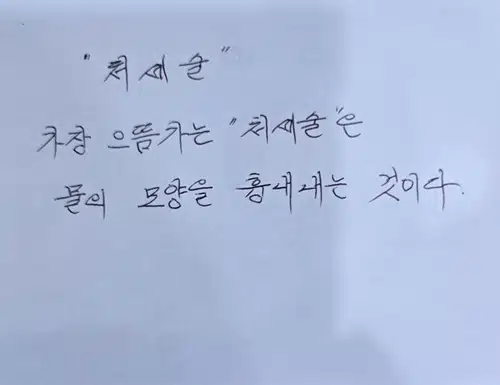 "처세술"
가장 으뜸가는 "처세술"은
물의 모양을 흉내내는 것이다.